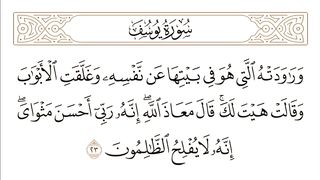 سُورَةُ يُوسُفَ
وَرَٰوَدَتْهُ ٱلَّتِى هُوَ فِى بَيْتِهَا عَن نَّفْسِهِۦ وَغَلَّقَتِ ٱلْأَبْوَٰبَ
وَقَالَتْ هَيْتَ لَكَ ۚ قَالَ مَعَاذَ ٱللَّهِ ۖ إِنَّهُۥ رَبِّىٓ أَحْسَنَ مَثْوَاىَ ۖ
إِنَّهُۥ لَا يُفْلِحُ ٱلظَّٰلِمُونَ ٢٣